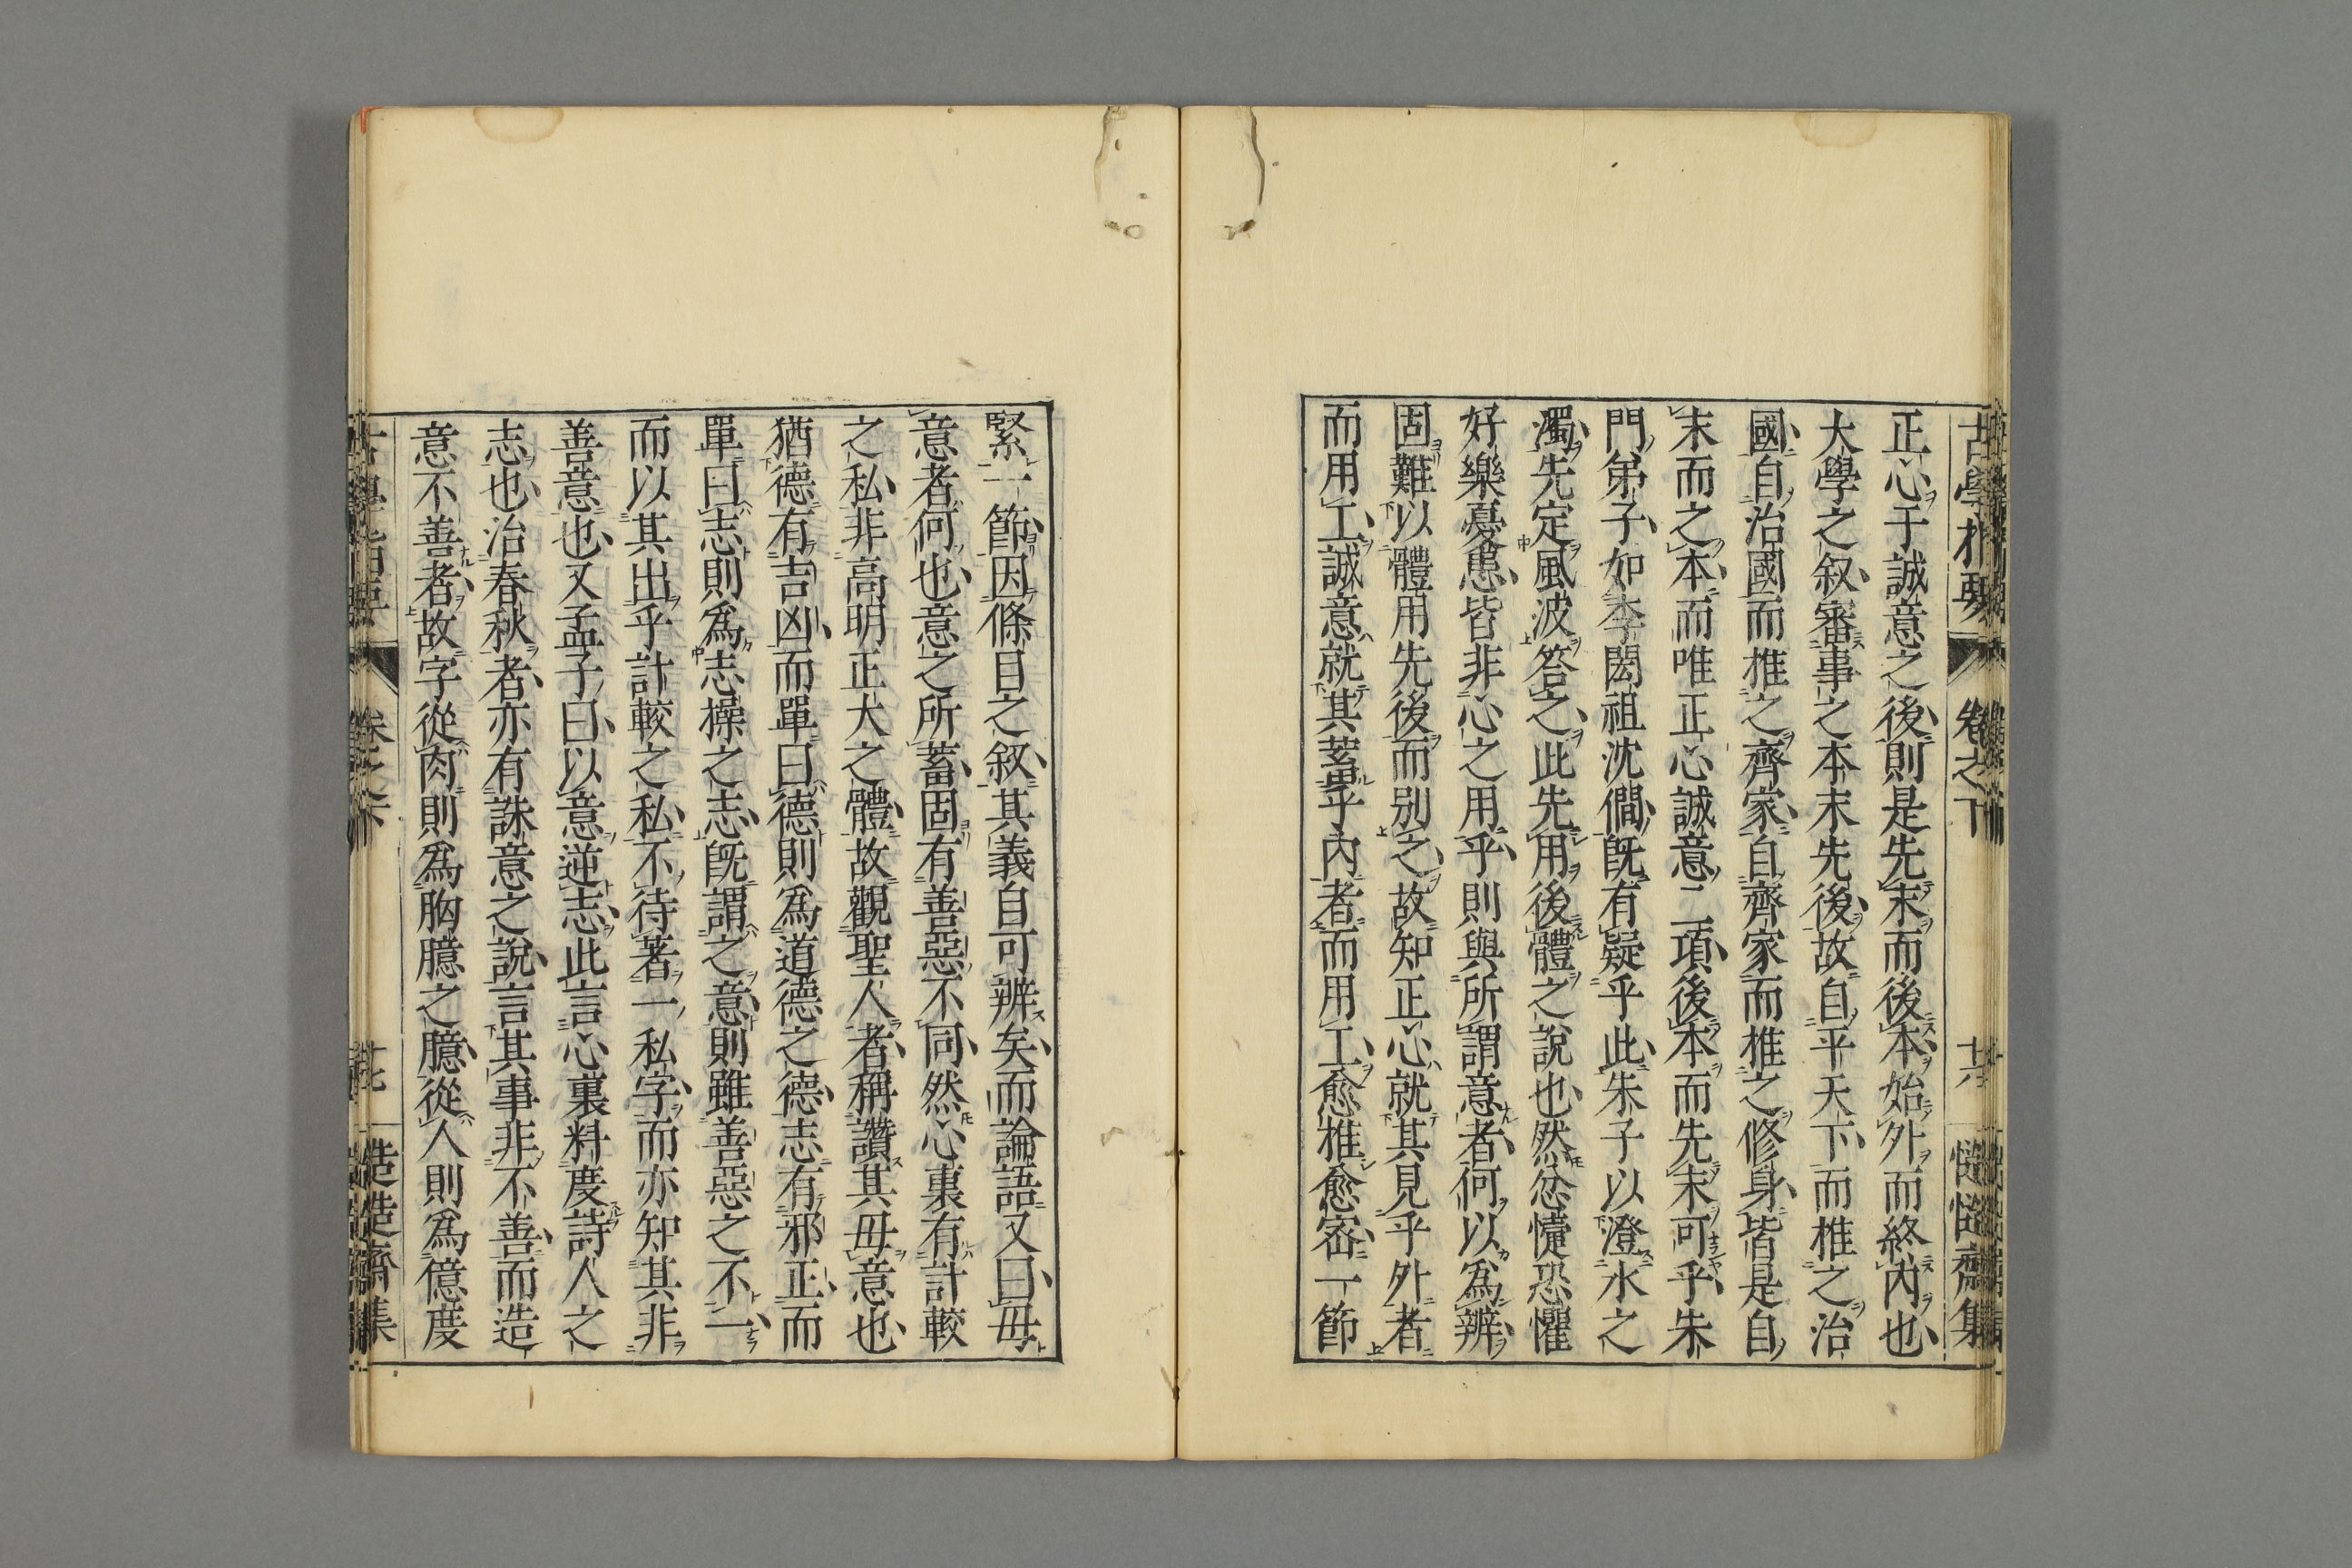 古學指要 卷之下 廿六 慥慥齋集
正心于誠意之後則是先末而後本始外而終內也
大學之叙審事之本末先後故自平天下而推之治
國自治國而推之齊家自齊家而推之修身皆是自
末而之本而唯正心誠意二項後本而先末可乎朱
門弟子如李閎祖沈僩既有疑乎此朱子以澄水之
濁先定風波答之此先用後體之說也然忿懥恐懼
好樂憂患皆非心之用乎則與所謂意者何以為辨
固難以體用先後而別之故知正心就其見乎外者
而用工誠意就其蓄乎內者而用工愈雅愈密一節
緊一節因條目之叙其義自可辨矣而論語又曰毋
意者何也意之所蓄固有善惡不同然心裏有計較
之私非高明正大之體故觀聖人者稱讚其毋意也
猶德有吉凶而單曰德則為道德之德志有邪正而
單曰志則為志操之志既謂之意則雖善惡之不一
而以其出乎計較之私不待著一私字而亦知其非
善意也又孟子曰以意逆志此言心裏料度詩人之
志也治春秋者亦有誅意之說言其事非不善而造
意不善者故字從肉則為胸臆之臆從人則為億度
古學指要 卷之下 廿七 慥慥齋集